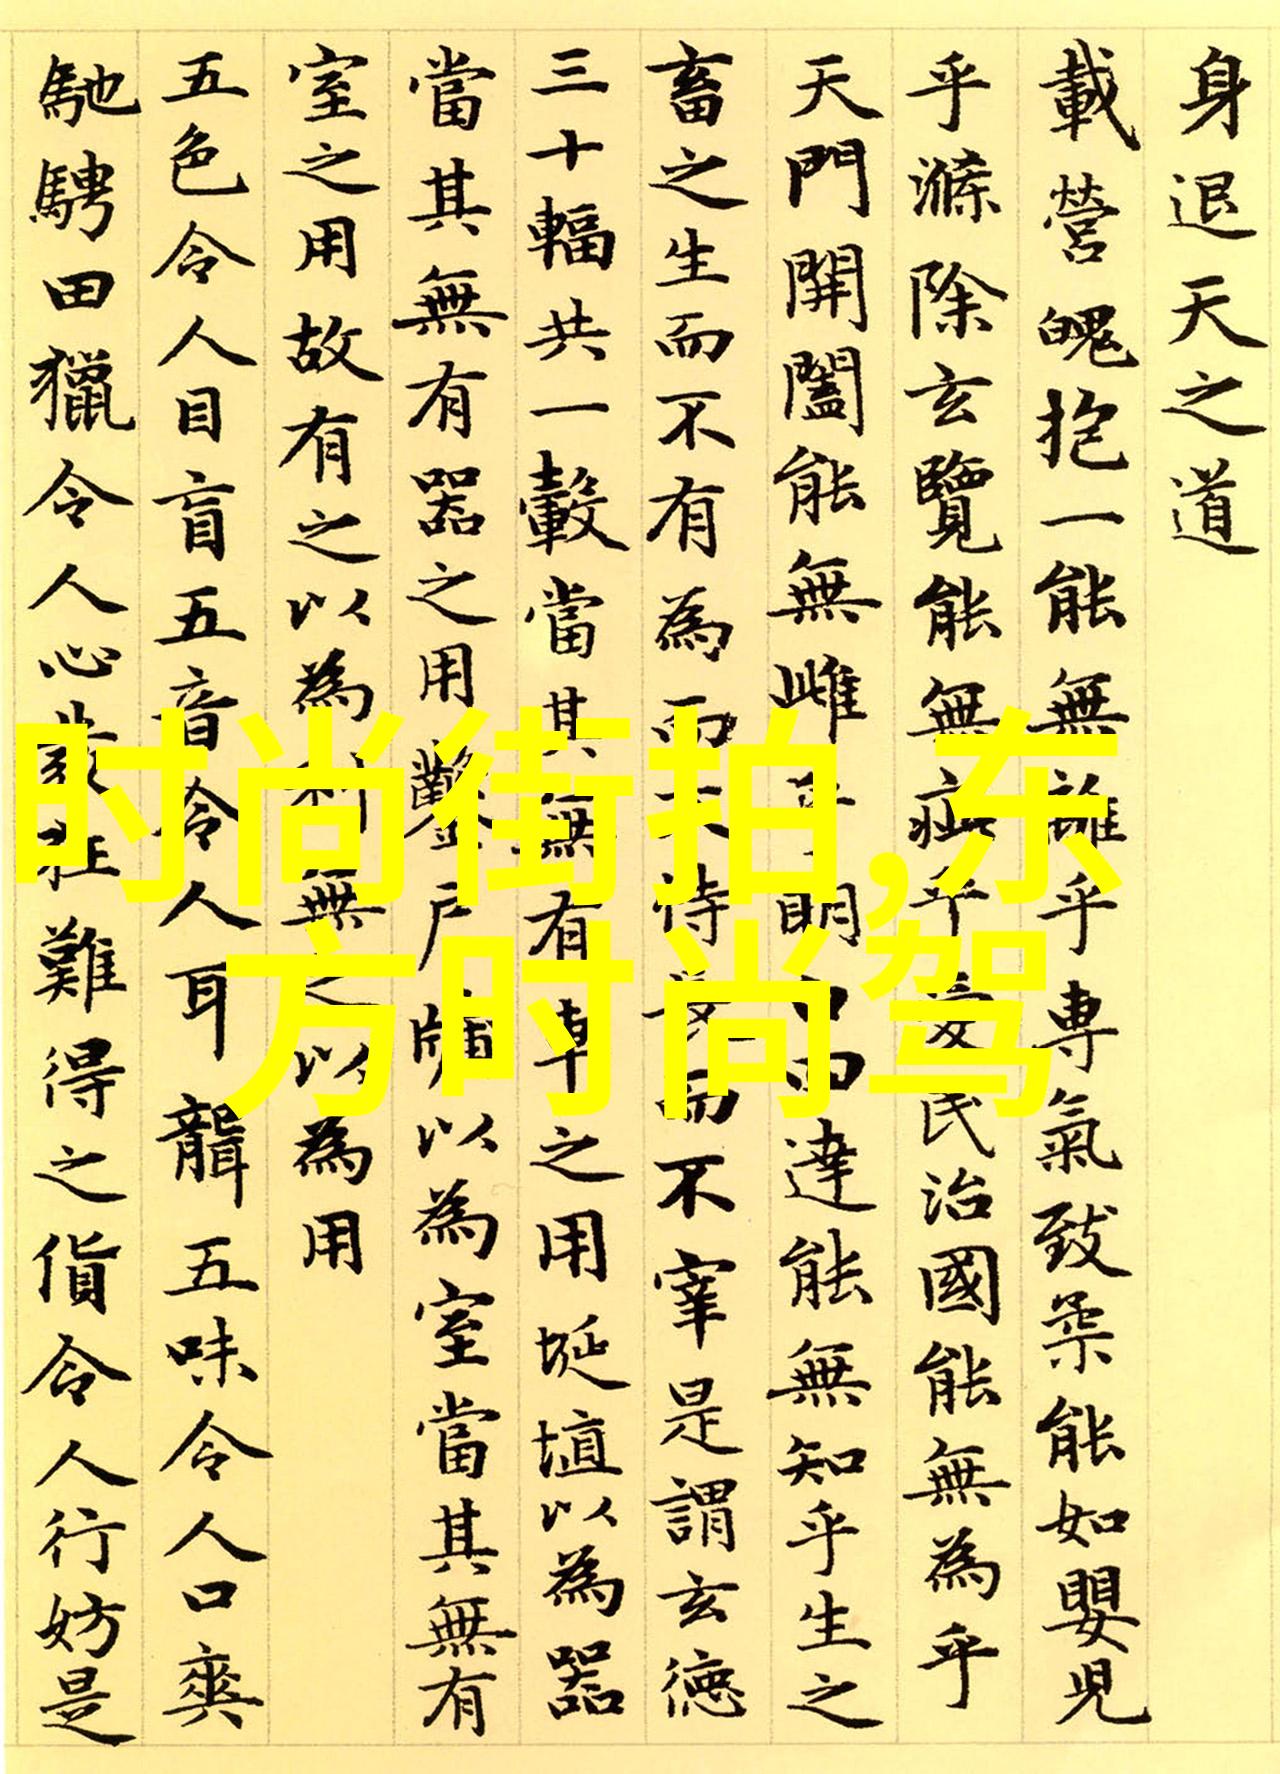 身退天之道
載營魄抱一能無離乎專氣致柔能如嬰兒
乎滌除玄覽能無疵乎愛民治國能無為乎
天門開闔能無雌乎明白四達能無知乎生之
畜之生而不有為而不恃長而不宰是謂玄德
三十輻共一轂當其無有車之用埏埴以為器
當其無有器之用鑿戶牖以為室當其無有
室之用故有之以為利無之以為用
五色令人目盲五音令人耳聾五味令人口爽
馳騁田獵令人心發狂難得之貨令人行妨是
时尚街拍,东
方时尚驾